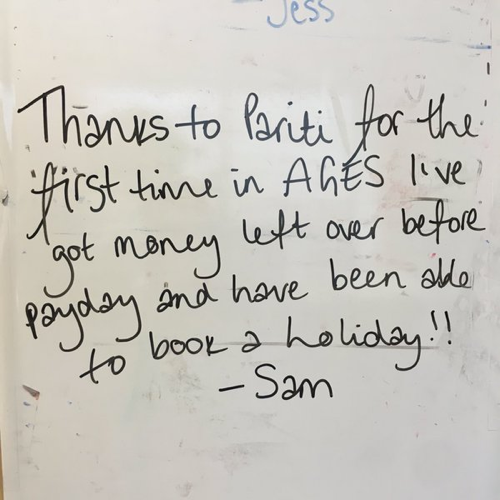 Jess
Thanks to Pariti for the
first time in AGES I've
got money left over before
payday and have been able
to book a holiday!!
- Sam